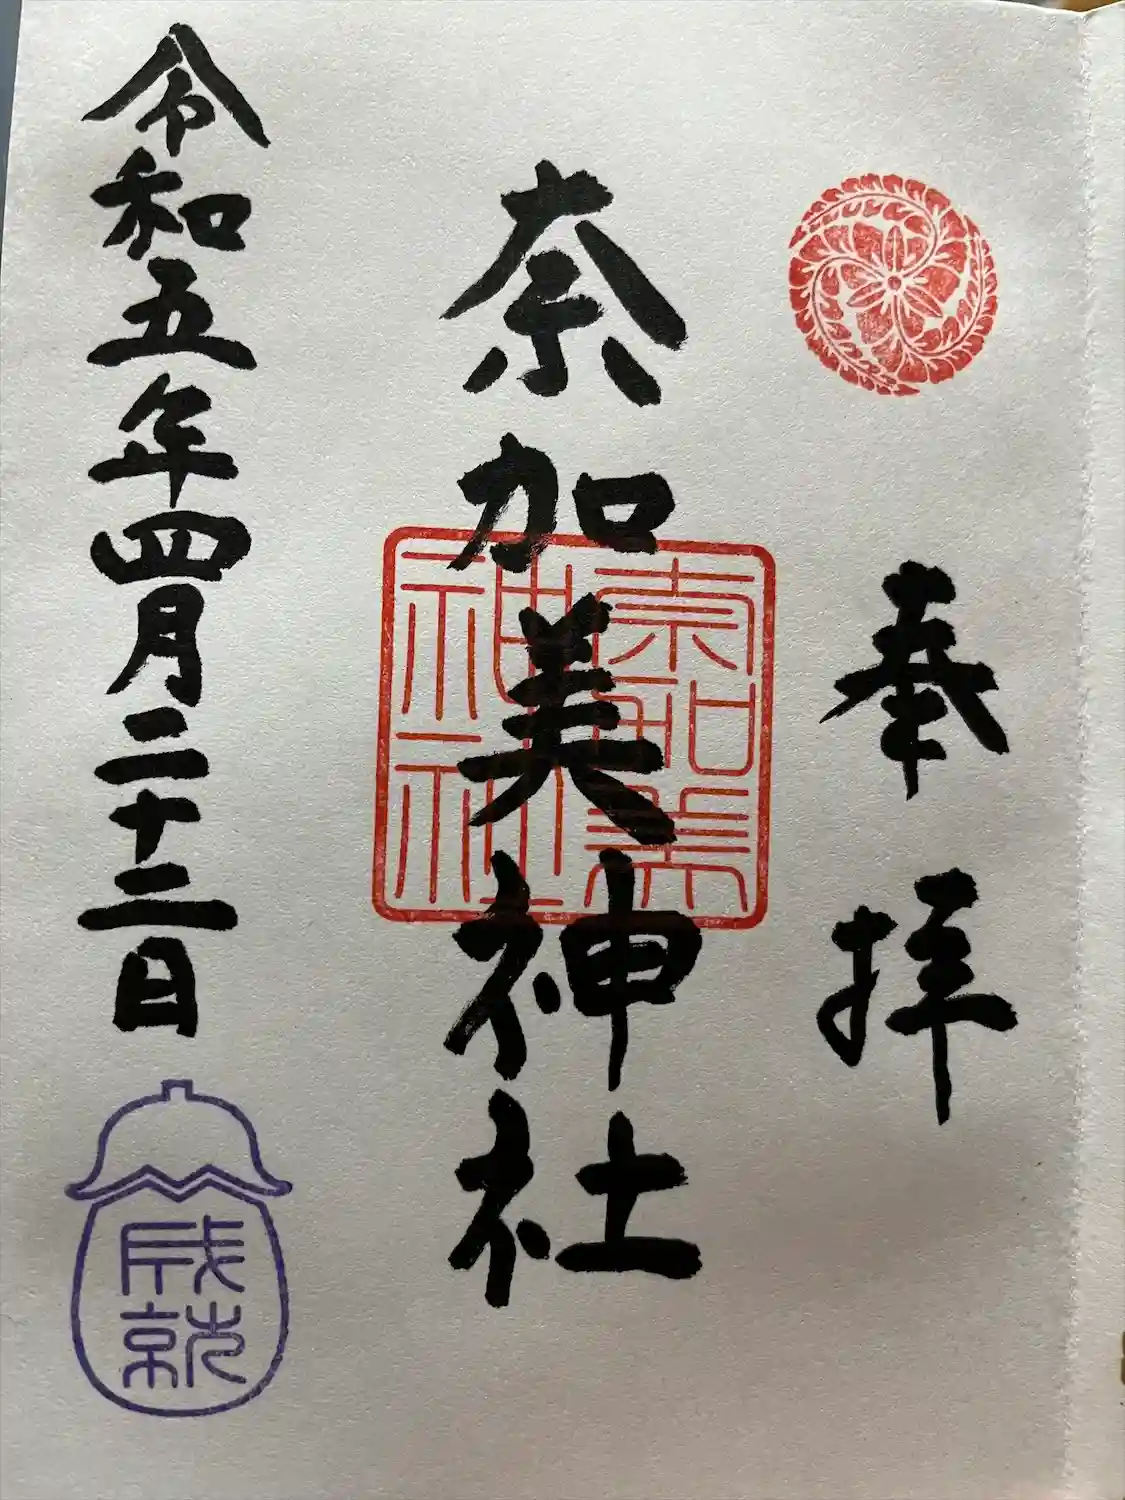 奉拝
奈加美神社
奈加美神社
令和五年四月二十二日
成就